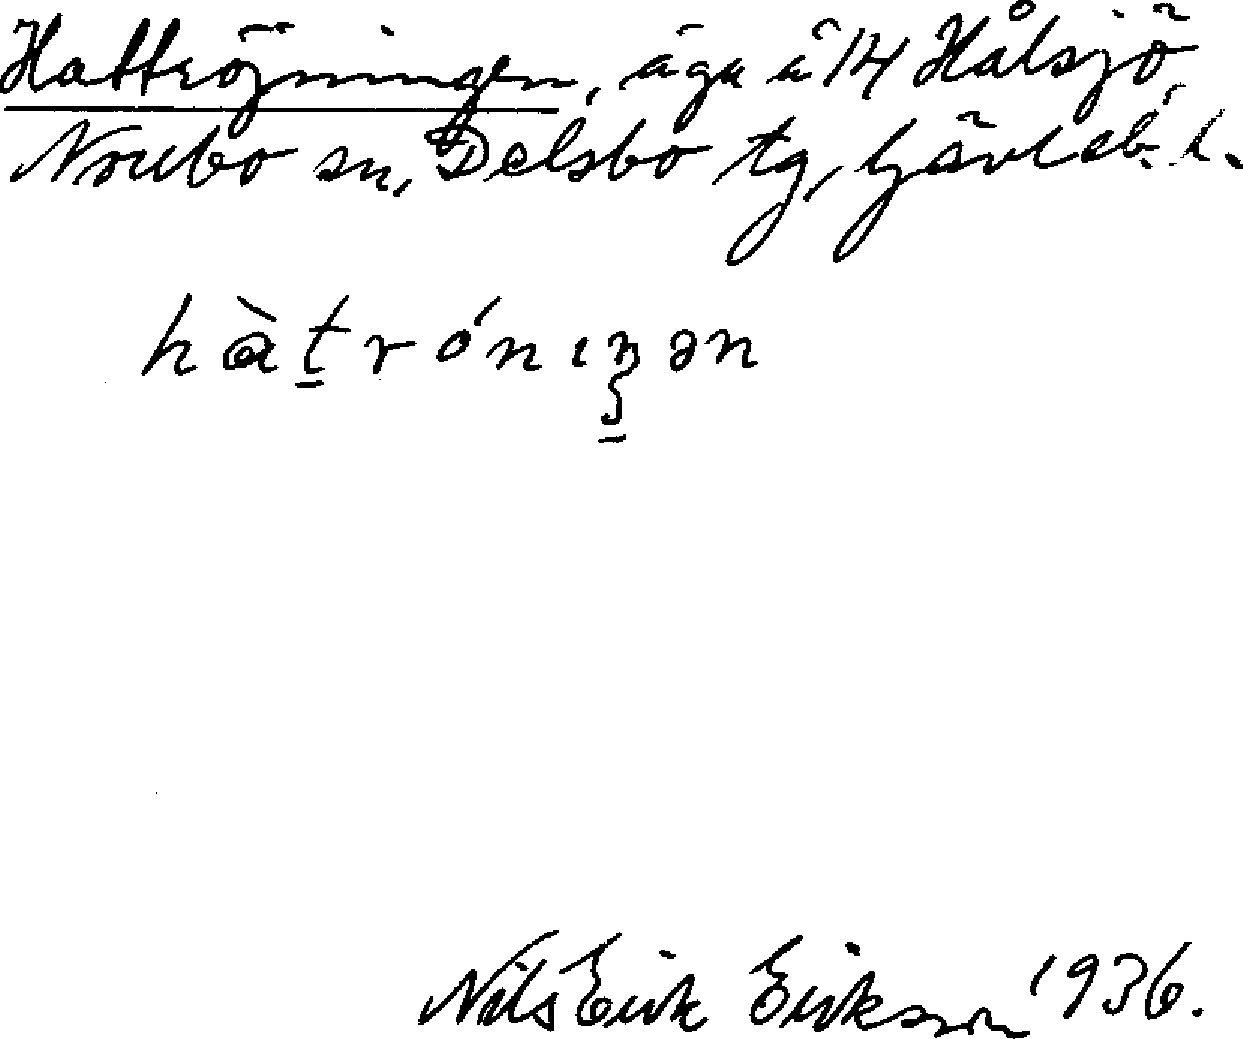 Hattröjningen, äga å 14 Hålsjö,
Norrbo sn, Delsbo tg, Gävleb. l.
hàt̠rónıŋən
Nils Erik Erikson 1936.